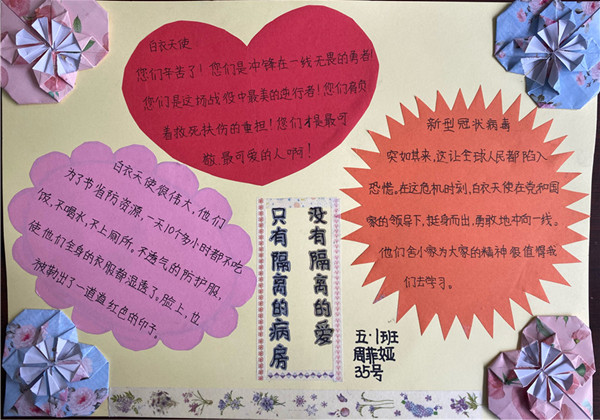 白衣天使
您们辛苦了！您们是冲锋在一线无畏的勇者！
您们是这场战役中最美的逆行者！您们肩负
着救死扶伤的重担！您们才是最可
敬、最可爱的人啊！
新型冠状病毒
突如其来,这让全球人民都陷入
恐慌。在这危机时刻,白衣天使在党和国
家的领导下,挺身而出,勇敢地冲向一线。
他们舍小家为大家的精神很值得我
们去学习。
白衣天使很伟大,他们
为了节省防资源,一天10个多小时都不吃
饭,不喝水,不上厕所。不透气的防护服,
使他们全身的衣服都湿透了,脸上,也
被勒出了一道道红色的印子。
没有隔离的爱
只有隔离的病房
五·1班
周菲娅
35号